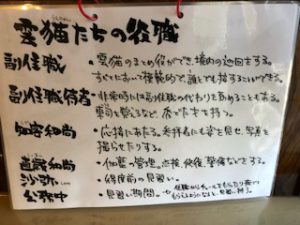 霊猫たちの役職
副住職
・霊猫のまとめ役ができ、境内の巡回をする。
すべてにおいて模範的で、誰とでも接することができる。
副住職侍者
・非常時には副住職の代わりを務めることもある。
知客和尚
・応接にあたる。参拝者にも姿を見せ、写真を
撮らせたりする。
直歳和尚
・伽藍の管理。点検、修復、整備などをする。
沙弥
・得度前の見習い。
公務中
・見習い期間。